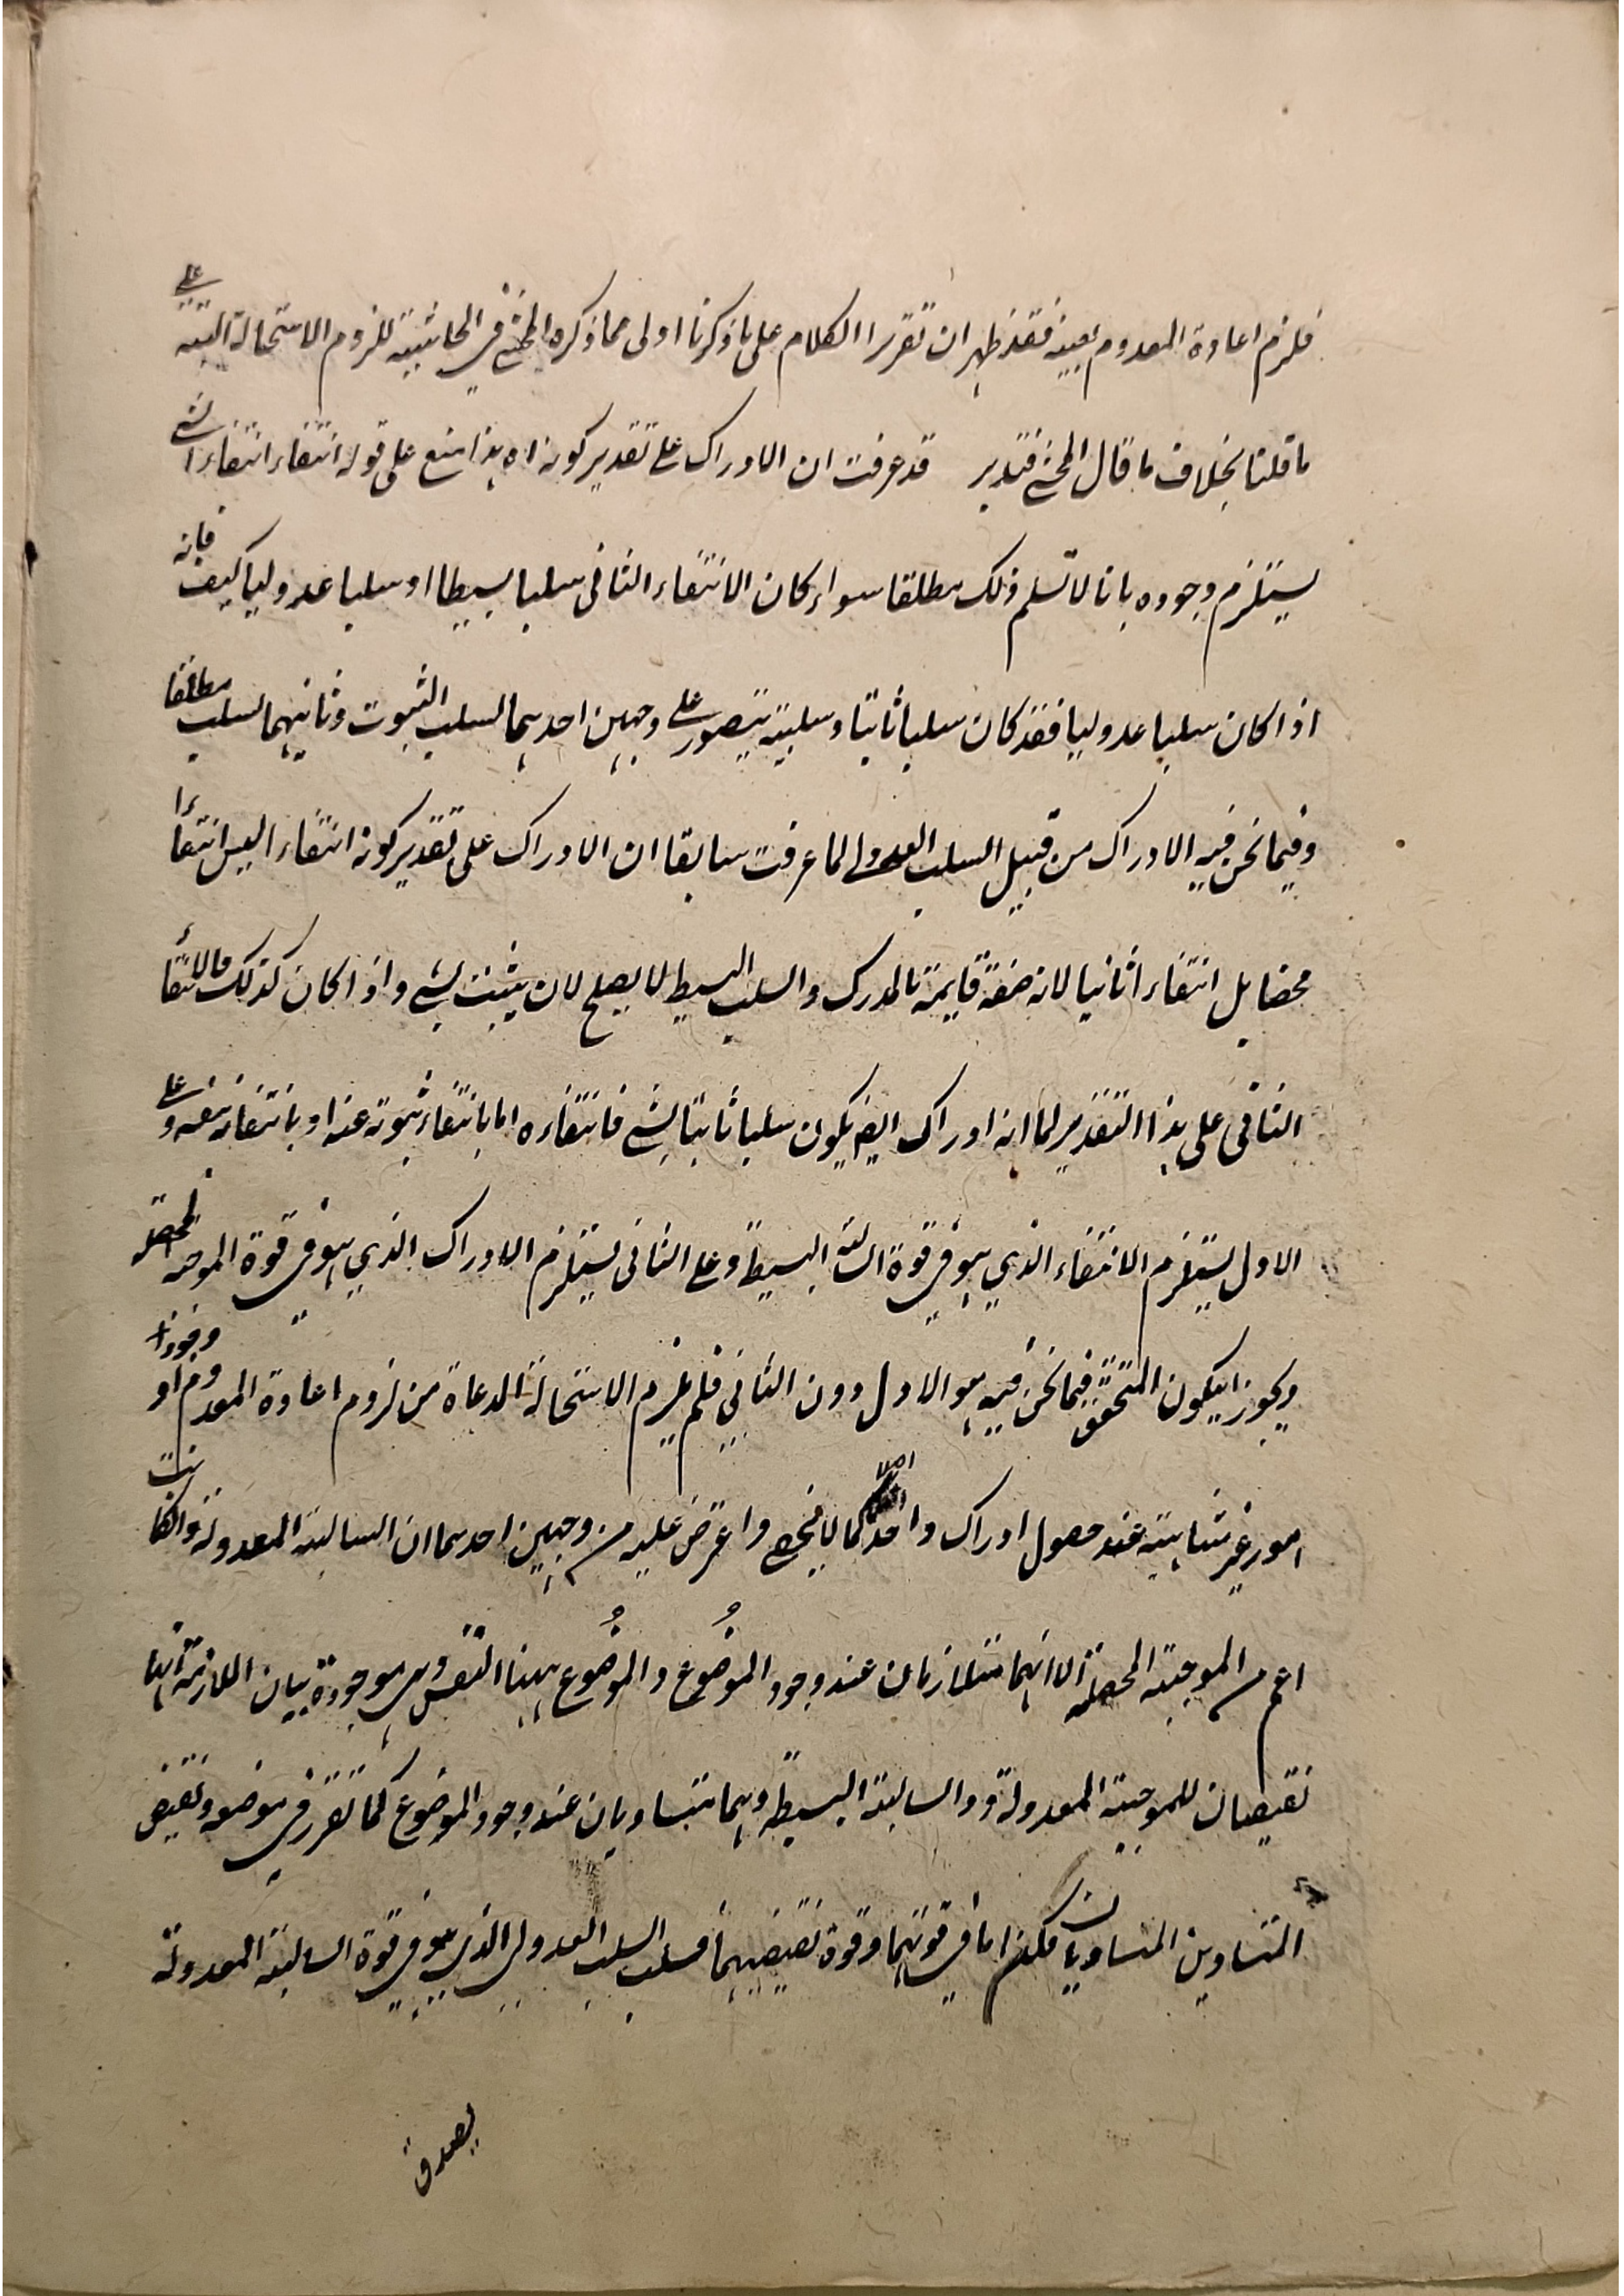 فلزم اعادة المعدوم بعينه فقد ظهر ان تقرير الكلام على ما ذكرنا اولى مما ذكره المحشي في الحاشية للزوم الاستحالة البتة على
ما قلنا بخلاف ما قال المحشي فتدبر قد عرفت ان الادراك على تقدير كونه اه هذا منع على قوله انتفاء انتفاء الشي
يستلزم وجوده بانا لا نسلم ذلك مطلقا سواء كان الانتفاء الثاني سلبا بسيطا او سلبا عدوليا كيف فانه
اذا كان سلبا عدوليا فقد كان سلبا ثابتا وسلبيته يتصور على وجهين احدهما لسلب الثبوت وثانيهما لسلب مطلقا
وفيما نحن فيه الادراك من قبيل السلب العدولي لما عرفت سابقا ان الادراك على تقدير كونه انتفاء اليس انتفاءا
محضا بل انتفاء اثانيا لانه صفة قايمة بالمدرك والسلب البسيط لا يصلح لان يثبت لشي واذا كان كذلك فالانتفاء
الثاني على هذا التقدير لما انه ادراك ايضا يكون سلبا ثابتا لشي فانتفاءه اما بانتفاء ثبوته عنه او بانتفائه نفسه وعلى
الاول يستلزم الانتفاء الذي هو في قوة السالبة البسيطة وعلى الثاني يستلزم الادراك الذي هو في قوة الموجبة المحصلة
ويجوز ان يكون المتحقق فيما نحن فيه هو الاول دون الثاني فلم يلزم الاستحالة المدعاة من لزوم اعادة المعدوم او وجود
امور غير متناهية عند حصول ادراك واحد كما لا يخفى واعترض عليه من وجهين احدهما ان السالبة المعدولة وان كانت
اعم من الموجبة المحصلة الا انهما متلازمان عند وجود الموضوع والموضوع ههنا النفس وهي موجودة بيان الملازمة انهما
نقيضان للموجبة المعدولة و والسالبة البسيطة وهما متساويان عند وجود الموضوع كما تقرر في موضعه ونقيض
المتساوين المتساويان فكذا ما في قوتهما وقوة نقيضيهما فسلب السلب العدولي الذي هو في قوة السالبة المعدولة
يصدق